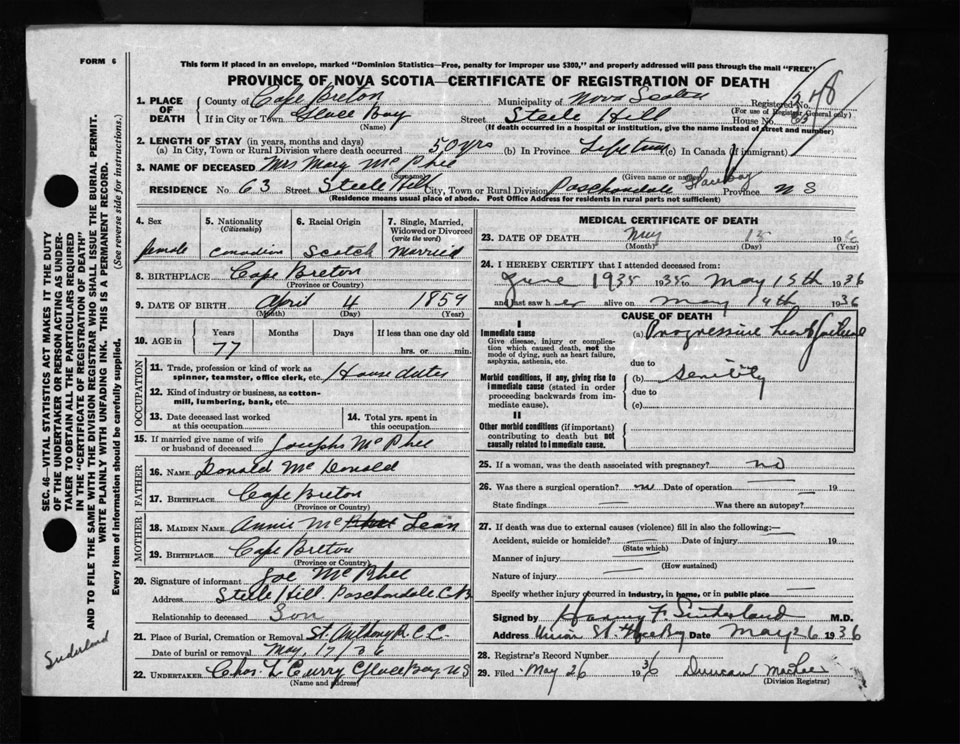 FORM 6
This form if placed in an envelope, marked "Dominion Statistics—Free, penalty for improper use $300," and properly addressed will pass through the mail "FREE"
PROVINCE OF NOVA SCOTIA—CERTIFICATE OF REGISTRATION OF DEATH
1. PLACE OF DEATH
County of Cape Breton Municipality of Nova Scotia Registered No.
(For use of Registrar General only)
If in City or Town Glace Bay Street Steele Hill House No. 63
(Name) (If death occurred in a hospital or institution, give the name instead of street and number)
2. LENGTH OF STAY (in years, months and days)
(a) In City, Town or Rural Division where death occurred 50 yrs (b) In Province Life time (c) In Canada (if immigrant)
3. NAME OF DECEASED Mrs Mary Mc Phee
(Surname) (Given name or names)
RESIDENCE No. 63 Street Steele Hill City, Town or Rural Division Paschendale Province N S
(Residence means usual place of abode. Post Office Address for residents in rural parts not sufficient)
4. Sex female
5. Nationality (Citizenship) Canadian
6. Racial Origin Scotch
7. Single, Married, Widowed or Divorced (write the word) Married
8. BIRTHPLACE Cape Breton
(Province or Country)
9. DATE OF BIRTH April 4 1859
(Month) (Day) (Year)
10. AGE in Years Months Days If less than one day old
77 hrs. or min.
OCCUPATION
11. Trade, profession or kind of work as spinner, teamster, office clerk, etc. House duties
12. Kind of industry or business, as cotton-mill, lumbering, bank, etc.
13. Date deceased last worked at this occupation
14. Total yrs. spent in this occupation
15. If married give name of wife or husband of deceased Josephs Mc Phee
FATHER
16. NAME Donald Mc Donald
17. BIRTHPLACE Cape Breton
(Province or Country)
MOTHER
18. MAIDEN NAME Annie Mc Phee Lean
19. BIRTHPLACE Cape Breton
(Province or Country)
20. Signature of informant Joe McPhee
Address Steele Hill. Paschendale C.B
Relationship to deceased Son
21. Place of Burial, Cremation or Removal St. Anthony R.C.C.
Date of burial or removal May, 17/36
22. UNDERTAKER Chas. L Curry Glace Bay N S
(Name and address)
MEDICAL CERTIFICATE OF DEATH
23. DATE OF DEATH May 15 19
(Month) (Day) (Year)
24. I HEREBY CERTIFY that I attended deceased from:
June 1935 to May 15th 1936
and last saw her alive on May 14th 1936
CAUSE OF DEATH
I
Immediate cause
Give disease, injury or complication which caused death, not the mode of dying, such as heart failure, asphyxia, asthenia, etc.
(a) Progressive heart failure
due to
Morbid conditions, if any, giving rise to immediate cause (stated in order proceeding backwards from immediate cause).
(b) Senility
due to
(c)
II
Other morbid conditions (if important) contributing to death but not causally related to immediate cause.
25. If a woman, was the death associated with pregnancy? no
26. Was there a surgical operation? no Date of operation 19
State findings Was there an autopsy?
27. If death was due to external causes (violence) fill in also the following:—
Accident, suicide or homicide? Date of injury 19
(State which)
Manner of injury
(How sustained)
Nature of injury
Specify whether injury occurred in industry, in home, or in public place
Signed by Harvey F. Sutherland M.D.
Address Union St. Glace Bay Date May 26 1936
28. Registrar's Record Number
29. Filed May 26 1936 Duncan
(Division Registrar)
SEC. 46—VITAL STATISTICS ACT MAKES IT THE DUTY OF THE UNDERTAKER OR PERSON ACTING AS UNDERTAKER TO OBTAIN ALL THE PARTICULARS REQUIRED IN THE "CERTIFICATE OF REGISTRATION OF DEATH"
AND TO FILE THE SAME WITH THE DIVISION REGISTRAR WHO SHALL ISSUE THE BURIAL PERMIT.
WRITE PLAINLY WITH UNFADING INK. THIS IS A PERMANENT RECORD.
Every item of information should be carefully supplied. (See reverse side for instructions.)